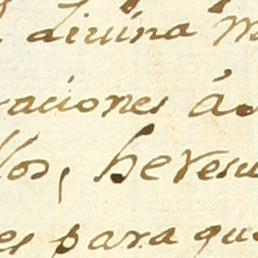 divina m
aciones á
llos, heresu
es para qu